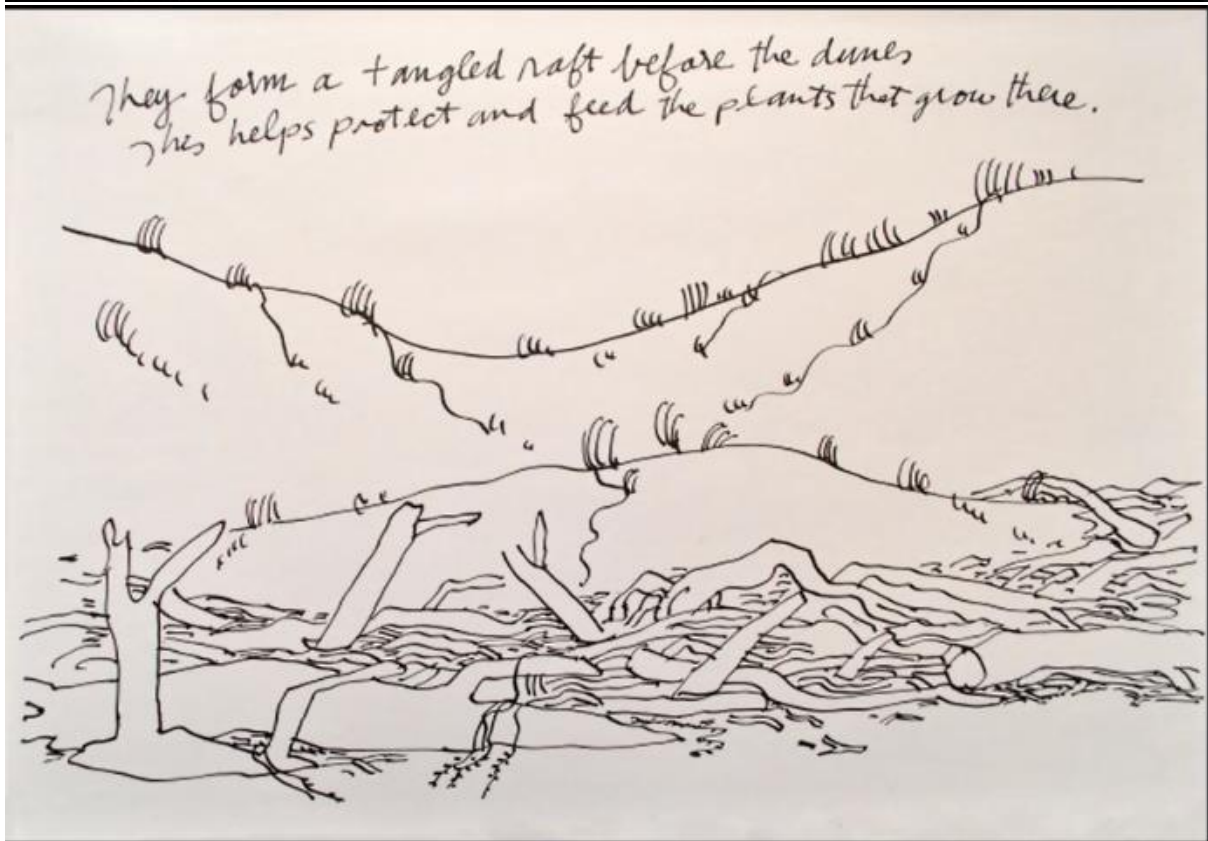 They form a tangled raft before the dunes
This helps protect and feed the plants that grow there.